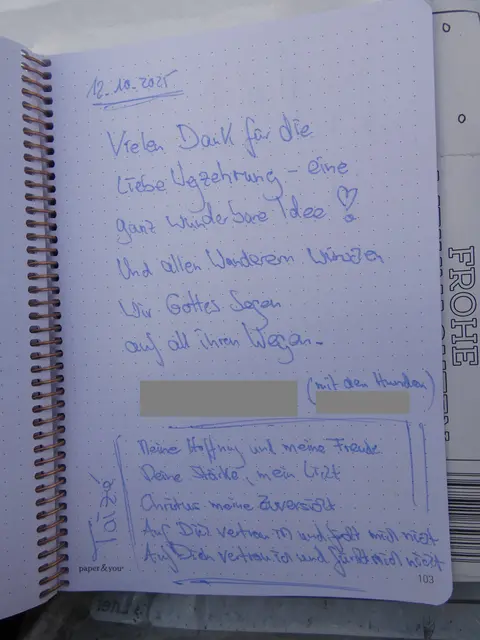 12.10.2025
Vielen Dank für die
liebe Wegzehrung - eine
ganz wunderbare Idee!
Und allen Wanderern wünschen
wir Gottes Segen
auf all ihren Wegen.
(mit den Hunden)
Meine Hoffnung und meine Freude
Meine Stärke, mein Licht
Christus meine Zuversicht
Auf Dich vertrau ich und fürcht mich nicht
Auf Dich vertrau ich und fürcht mich nicht
Taizé
paper&you
103
FROHE